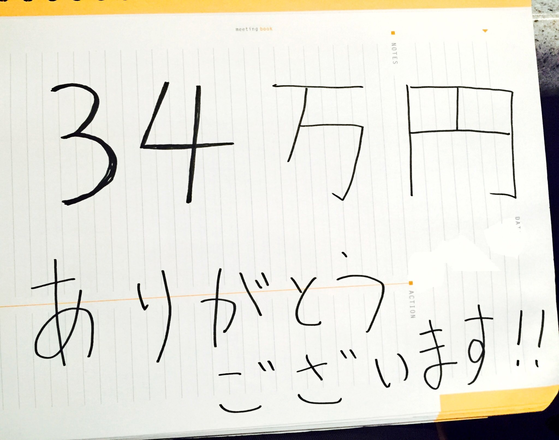 meeting book
NOTES
34万円
DA
ACTION
ありがとう
ございます!!